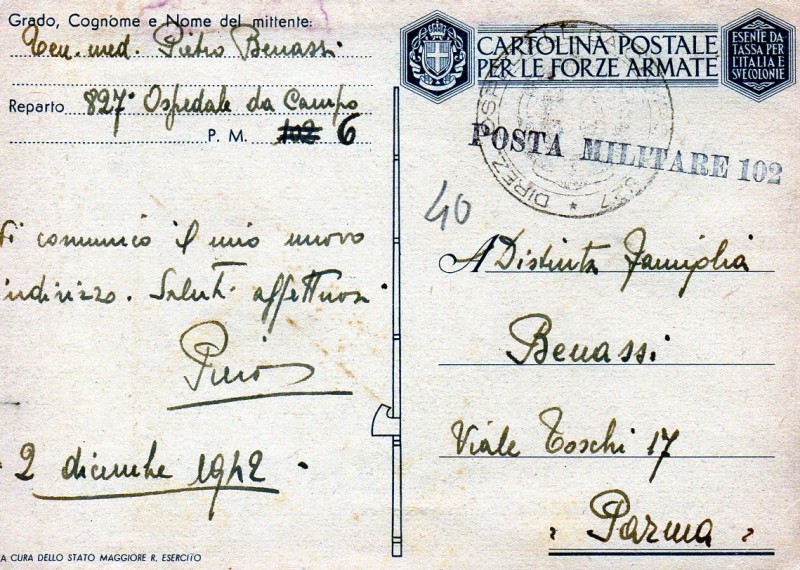 Grado, Cognome e Nome del mittente:
Ten. med. Pietro Benassi
Reparto 827° Ospedale da Campo
P. M. 102 6
Ti comunico il mio nuovo
indirizzo. Saluti affettuosi
Pierino
2 dicembre 1942
A CURA DELLO STATO MAGGIORE R. ESERCITO
CARTOLINA POSTALE
PER LE FORZE ARMATE
ESENTE DA
TASSA PER
L'ITALIA E
SVE COLONIE
POSTA MILITARE 102
DIREZ OSPEDALE DA 827
40
A Distinta Famiglia
Benassi
Viale Toschi 17
Parma